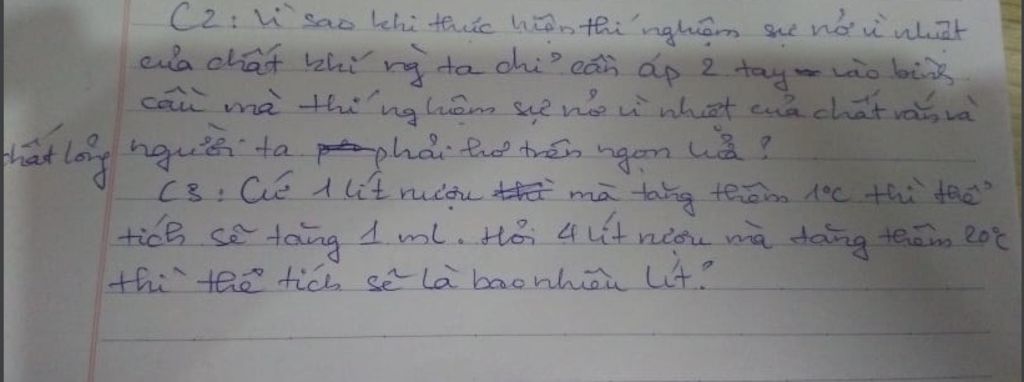 C2: Vì sao khi thực hiện thí nghiệm sự nở vì nhiệt
của chất khí ng ta chỉ cần áp 2 tay vào bình
cầu mà thí nghiệm sự nở vì nhiệt của chất rắn và
chất lỏng người ta phải hơ trên ngọn lửa?
C3: Cứ 1 lít rượu mà tăng thêm 1°C thì thể
tích sẽ tăng 1 ml. Hỏi 4 lít rượu mà tăng thêm 20°C
thì thể tích sẽ là bao nhiêu lít?